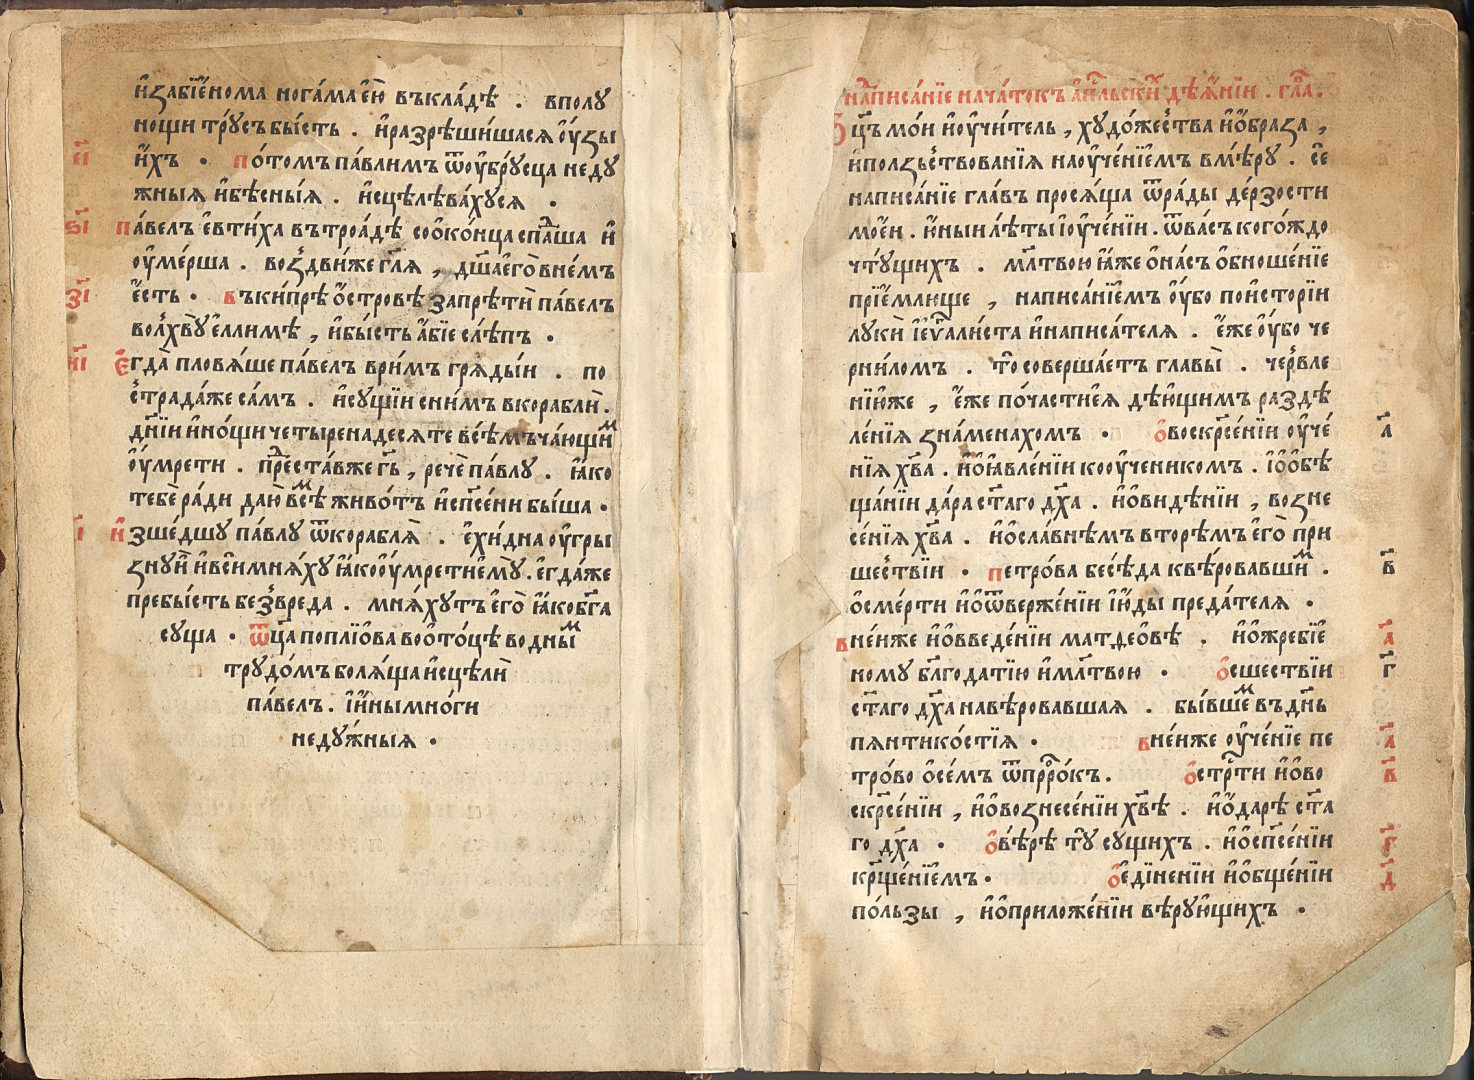 и҆забїе́нома нога́ма є҆ю̀ въкла́дѣ . вполу
нощи тру́съ бы́сть . и҆разрѣши́шася о҆у́зы
є҃і и҆́хъ . пото́мъ па́влимъ ѿо҆убру́сца неду
жныя и҆бѣ́сныѧ . и҆сцѣлѣва́хуся .
ѕ҃і па́велъ є҆вти́ха въ троа́дѣ соо҆ко́нца спа́дша и҆
о҆уме́рша . воздви́же гл҃я , дш҃а є҆го̀ вне́мъ
з҃і є҆́сть . въ ки́прѣ о҆́стровѣ запрѣтѝ па́велъ
волхву̀ є҆ли́мѣ , и҆бы́сть а҆́бїе слѣ́пъ .
и҃і є҆гда̀ пловя́ше па́велъ в ри́мъ гряды́и . по
страда́же са́мъ . и҆су́щїи сни́мъ в кораблѝ .
дн҃їи и҆но́щи четыренадесяте всѣ́мъ ча́ющим
о҆умрети . предста́вже гд҃ь , речѐ па́влу . ꙗ҆́ко
тебѐ ра́ди даю̀ всѣ́м живо́тъ и҆сп҃се́ни бы́ша .
и҆зше́дшу па́влу ѿкорабля̀ . є҆хи́дна о҆угры
знуѝ и҆вси́ мня́ху ꙗ҆́ко о҆умрети є҆му̀ . є҆гда́же
пребы́сть безвреда . мня́хутъ є҆го̀ ꙗ҆́ко бг҃а
су́ща . ѿц҃а поплїо́ва воо҆то́цѣ водным
трудо́мъ боля́ща и҆сцѣлѝ
па́велъ . і҆и҆́ны мно́ги
неду́жныя .
написа́нїе нача́токъ а҆пⷭ҇льски́й дѣя́нїи . гла҃ .
О҆ц҃ъ мо́и и҆о҆учи́тель , худо́жества и҆о҆́браза ,
и҆ползьствованїя нао҆уче́нїемъ вмѣ́ру . сѐ
написа́нїе гла́въ прося́ща ѿра́ды де́рзости
мое́и . и҆́ныи лѣ́ты і҆о҆уче́нїи . ѿва́съ кого́ждо
чту́щихъ . мл҃твою ꙗ҆́же о҆на́съ о҆бноше́нїе
прїе́млюще , написа́нїемъ о҆у́бо пои҆сторїи
луки̏ і҆є҆ѵⷢ҇али́ста и҆написа́теля . є҆́же о҆у́бо че
рни́ломъ . то̀ соверша́етъ главы̀ . че́рвле
нїю́же , є҆́же по́части є҆я дѣ́ющимъ раздѣ
ле́нїя зна́менахомъ . о҆воскрⷭ҇е́нїи о҆уче́ а҃
нїя хв҃а . и҆о҆ꙗ҆вле́нїи коо҆ученикомъ . і҆о҆о҆бѣ
ща́нїи да́ра ст҃аго дх҃а . и҆о҆видѣ́нїи , возне
се́нїя хв҃а . и҆о҆сла́внѣмъ вторѣ́мъ є҆го̀ при
ше́ствїи . петро́ва бесѣ́да к вѣ́ровавшим . в҃
о҆сме́рти и҆о҆ѿверже́нїи і҆ю́ды преда́теля .
в не́мже и҆о҆введе́нїи матѳео́вѣ . и҆о҆жребїѐ а҃
ному бл҃года́тїю и҆мл҃твою . о҆сшествїи г҃
ст҃аго дх҃а на вѣ́ровавшая . бы́вшем въ дн҃ь
пянтико́стїя . в не́мже о҆уче́нїе пе а҃
тро́во о҆се́мъ ѿпррⷪ҇о́къ . о҆стрⷭ҇ти и҆о҆во в҃
скрⷭ҇е́нїи , и҆о҆вознесе́нїи хв҃ѣ . и҆о҆да́рѣ ст҃а
го дх҃а . о҆вѣ́рѣ ту̀ су́щихъ . и҆о҆сп҃се́нїи г҃
крⷭ҇ще́нїемъ . о҆едїне́нїи и҆о҆бще́нїи д҃
по́льзы , и҆о҆приложе́нїи вѣ́рующихъ .